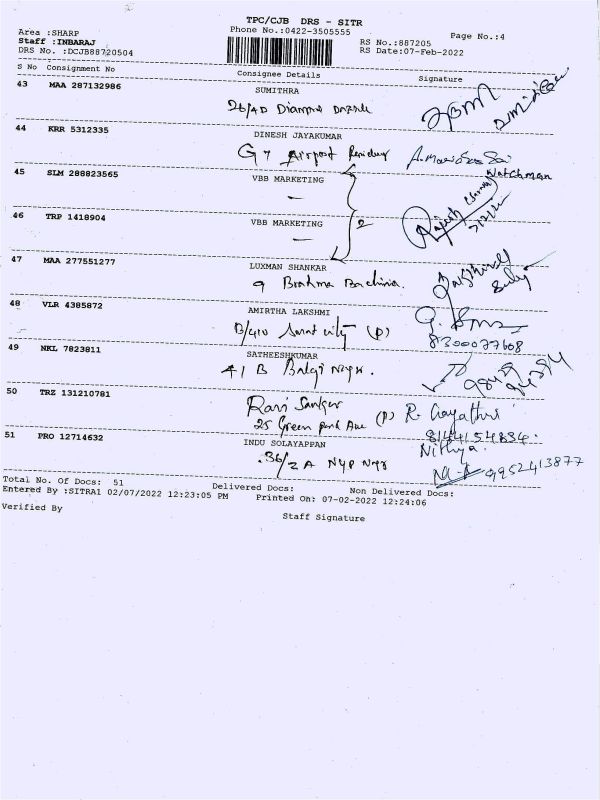 TPC/CJB DRS - SITR
Area :SHARP Phone No.:0422-3505555 Page No.:4
Staff :INBARAJ RS No.:887205
DRS No. :DCJB88720504 RS Date:07-Feb-2022
S No Consignment No Consignee Details Signature
43 MAA 287132986 SUMITHRA
26/4D Diamond
44 KRR 5312335 DINESH JAYAKUMAR
G7 Airport
Watchman
45 SLM 288823565 VBB MARKETING
—
46 TRP 1418904 VBB MARKETING 2
Rajesh
7/2/22
—
47 MAA 277551277 LUXMAN SHANKAR
9 Brahma
48 VLR 4385872 AMIRTHA LAKSHMI
B/410 city (P)
8300077608
49 NKL 7823811 SATHEESHKUMAR
41 B Balaji Nagar.
50 TRZ 131210781 Ravi Sankar
25 Green Park Ave (P) R. Gayathri
8144154834.
51 PRO 12714632 INDU SOLAYAPPAN
Nithya.
36/2A NYP Ngr
9952413877
Total No. Of Docs: 51 Delivered Docs: Non Delivered Docs:
Entered By :SITRA1 02/07/2022 12:23:05 PM Printed On: 07-02-2022 12:24:06
Verified By Staff Signature